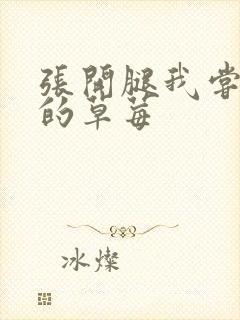 張開腿我嘗
的草莓
冰燦